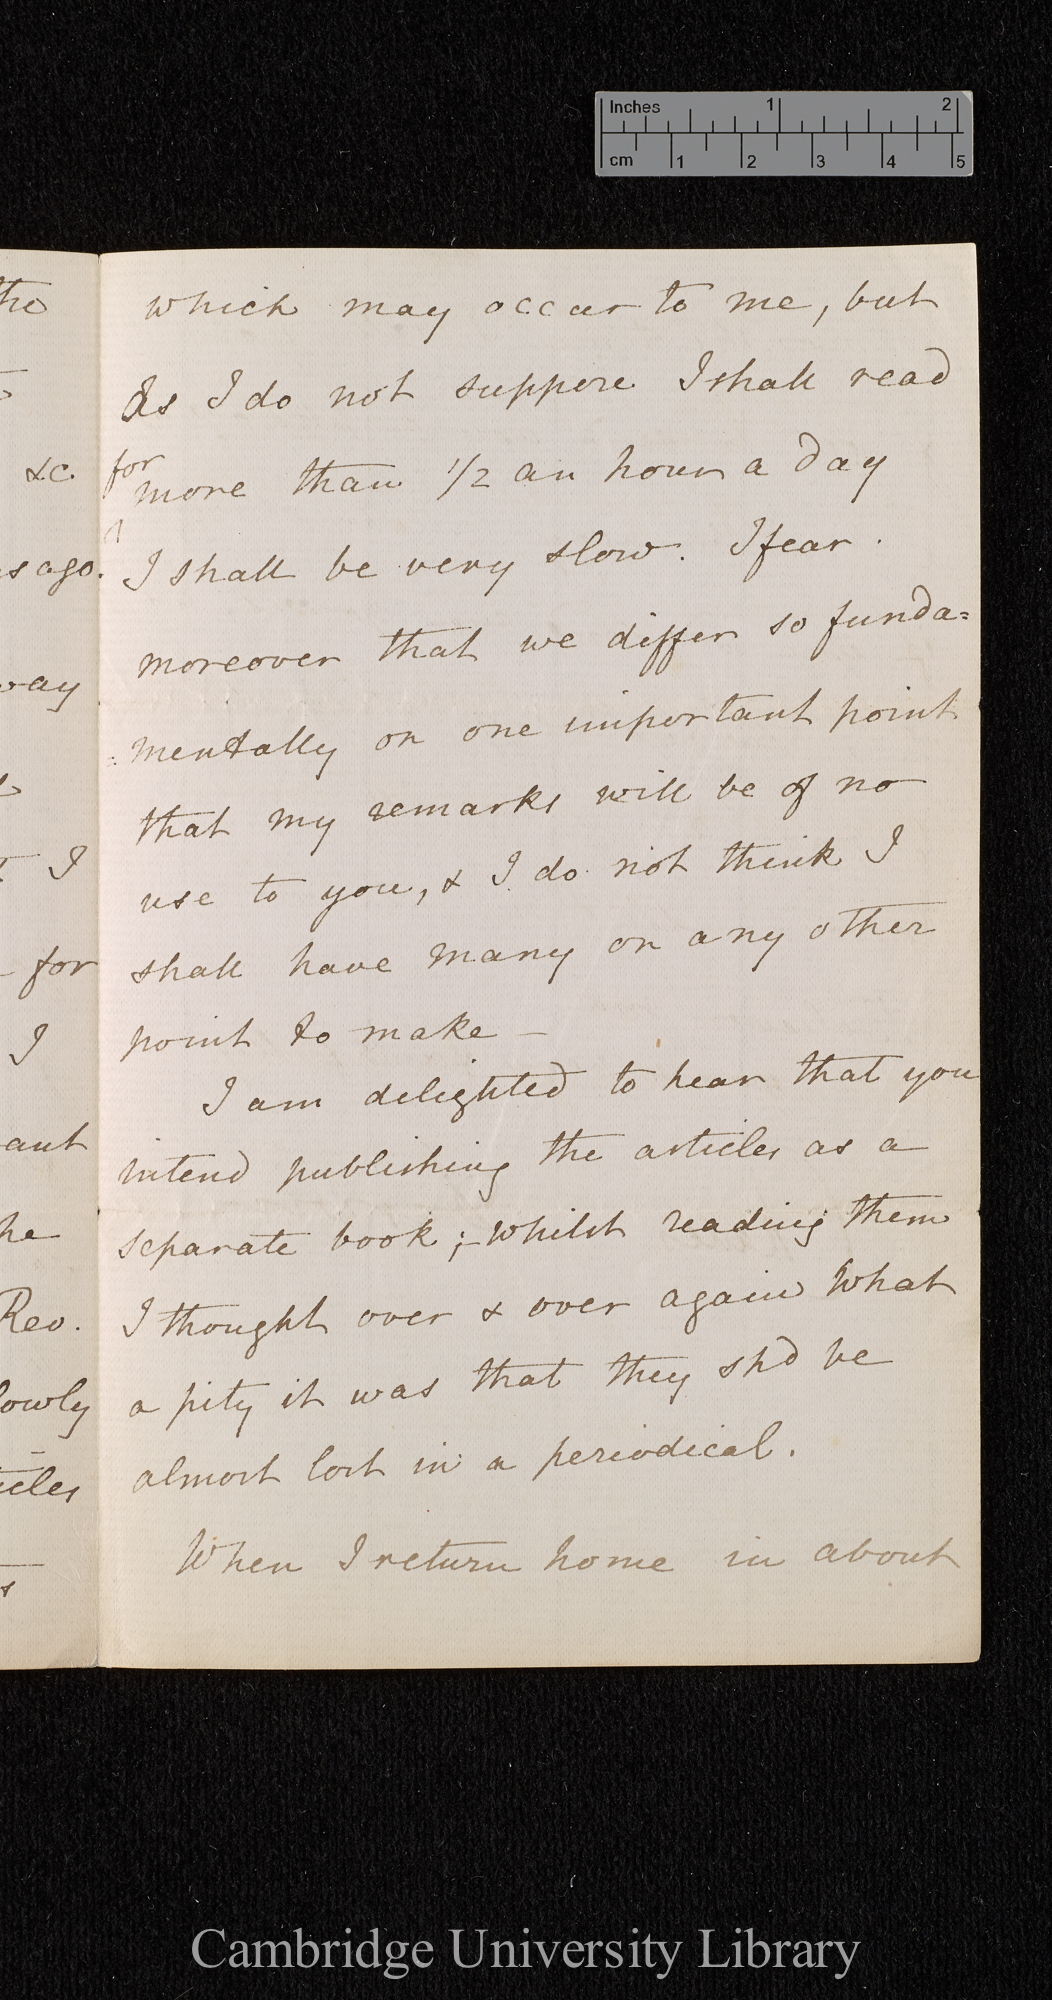 Inches 1 2
cm 1 2 3 4 5
the
&c.
s ago.
way
I
for
I
ant
he
Rev.
lowly
icles
which may occur to me, but
As I do not suppose I shall read
for
more than 1/2 an hour a day
I shall be very slow. I fear.
moreover that we differ so funda=
=mentally on one important point
that my remarks will be of no
use to you, & I do not think I
shall have many on any other
point to make —
I am delighted to hear that you
intend publishing the articles as a
separate book;— whilst reading them
I thought over & over again what
a pity it was that they shd be
almost lost in a periodical.
When I return home in about
Cambridge University Library